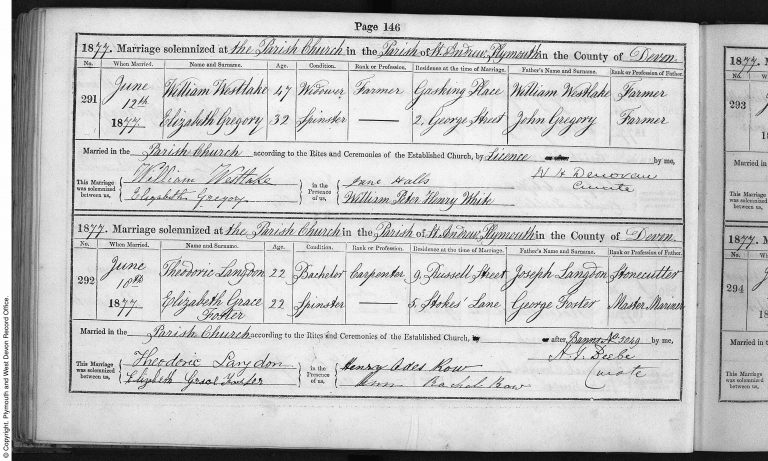 Page 146
1877. Marriage solemnized at the Parish Church in the Parish of St. Andrew Plymouth in the County of Devon.
No. When Married. Name and Surname. Age. Condition. Rank or Profession. Residence at the time of Marriage. Father's Name and Surname. Rank or Profession of Father.
291 June 12th 1877
William Westlake 47 Widower Farmer Gasking Place William Westlake Farmer
Elizabeth Gregory 32 Spinster —— 2, George Street John Gregory Farmer
Married in the Parish Church according to the Rites and Ceremonies of the Established Church, by Licence or after by me,
This Marriage was solemnized between us, William Westlake Elizabeth Gregory in the Presence of us, Jane Halls William Peter Henry White
Curate
1877. Marriage solemnized at the Parish Church in the Parish of St. Andrew Plymouth in the County of Devon.
No. When Married. Name and Surname. Age. Condition. Rank or Profession. Residence at the time of Marriage. Father's Name and Surname. Rank or Profession of Father.
292 June 1877
Theodoric Langdon 22 Bachelor Carpenter 9, Russell Street Joseph Langdon Stonecutter
Elizabeth Grace Foster 22 Spinster —— 5, Stokes' Lane George Foster Master Mariner
Married in the Parish Church according to the Rites and Ceremonies of the Established Church, by or after Banns No 3049 by me,
This Marriage was solemnized between us, Theodoric Langdon Elizabeth Grace Foster in the Presence of us, Henry Row Ann Rachel Row
Curate
1877. M
No. When
293
Married in t
This Marriage was solemnized between us,
1877. M
No. When
294
Married in t
This Marriage was solemnized between us,
© Copyright. Plymouth and West Devon Record Office.